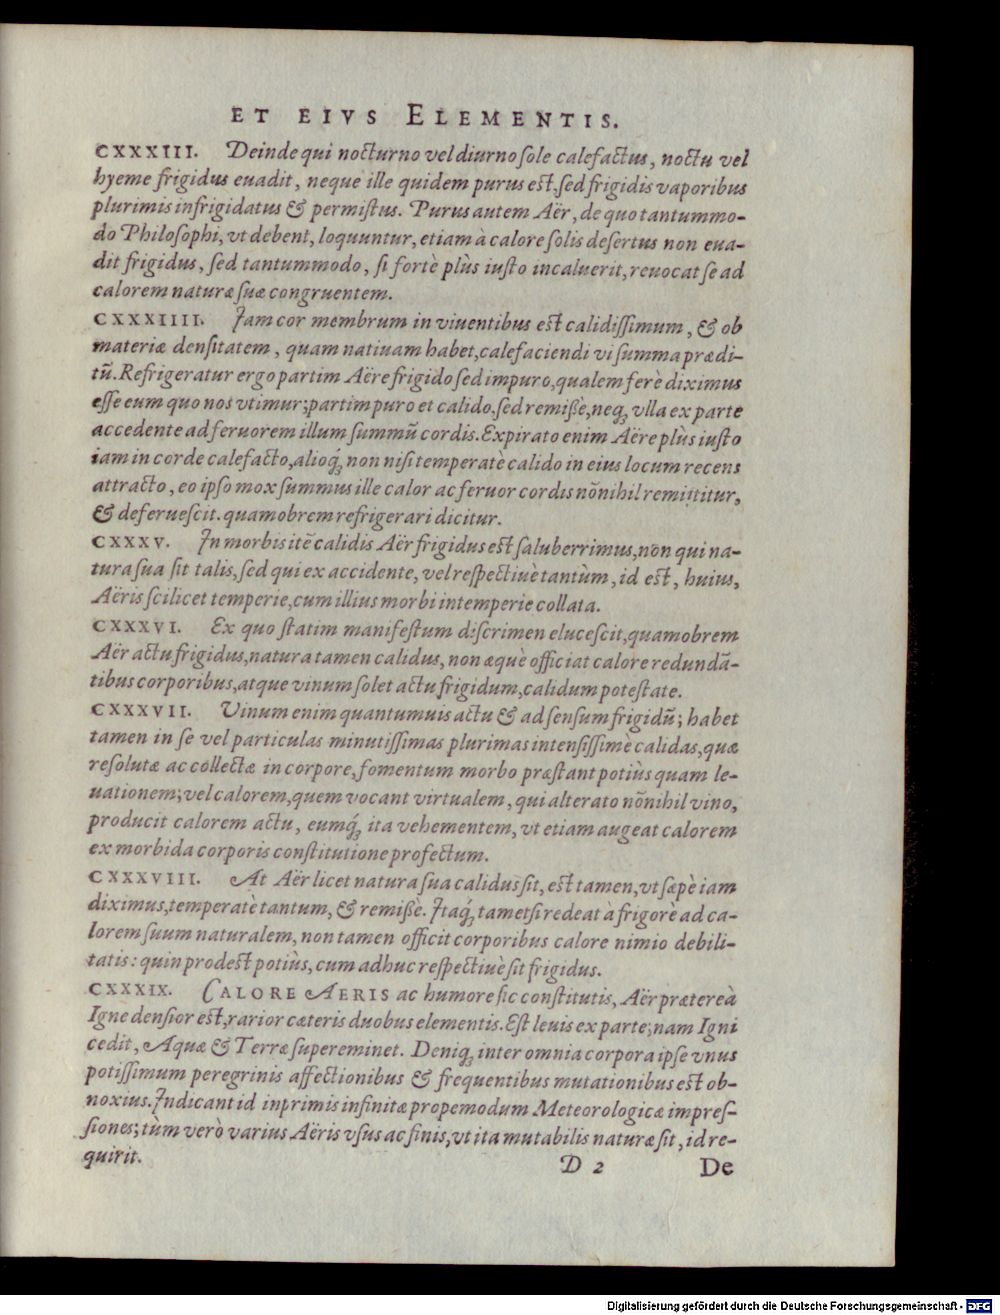 ET EIVS ELEMENTIS.
CXXXIII. Deinde qui nocturno vel diurno ſole calefactus, noctu vel
hyeme frigidus euadit, neque ille quidem purus eſt. ſed frigidis vaporibus
plurimis infrigidatus & permiſtus. Purus autem Aër, de quo tantummo-
do Philoſophi, vt debent, loquuntur, etiam à calore ſolis deſertus non eua-
dit frigidus, ſed tantummodo, ſi fortè plùs iuſto incaluerit, reuocat ſe ad
calorem naturæ ſuæ congruentem.
CXXXIIII. Jam cor membrum in viuentibus eſt calidiſſimum, & ob
materiæ denſitatem, quam natiuam habet, calefaciendi vi ſumma prædi-
tū. Refrigeratur ergo partim Aëre frigido ſed impuro, qualem ferè diximus
eſſe eum quo nos vtimur; partim puro et calido. ſed remiſſe, neq́ue vlla ex parte
accedente ad feruorem illum ſummū cordis. Expirato enim Aëre plùs iuſto
iam in corde calefacto, alioq́; non niſi temperatè calido in eius locum recens
attracto, eo ipſo mox ſummus ille calor ac feruor cordis nōnihil remittitur,
& deferueſcit. quamobrem refrigerari dicitur.
CXXXV. In morbis itē calidis Aër frigidus eſt ſaluberrimus, non qui na-
tura ſua ſit talis, ſed qui ex accidente, vel reſpectiuè tantùm, id eſt, huius,
Aëris ſcilicet temperie, cum illius morbi intemperie collata.
CXXXVI. Ex quo ſtatim manifeſtum diſcrimen eluceſcit, quamobrem
Aër actu frigidus, natura tamen calidus, non æquè officiat calore redundā-
tibus corporibus, atque vinum ſolet actu frigidum, calidum poteſtate.
CXXXVII. Vinum enim quantumuis actu & ad ſenſum frigidū; habet
tamen in ſe vel particulas minutiſſimas plurimas intenſiſſimè calidas, quæ
reſolutæ ac collectæ in corpore, fomentum morbo præſtant potiùs quam le-
uationem; vel calorem, quem vocant virtualem, qui alterato nōnihil vino,
producit calorem actu, eumq́; ita vehementem, vt etiam augeat calorem
ex morbida corporis conſtitutione profectum.
CXXXVIII. At Aër licet natura ſua calidus ſit, eſt tamen, vt ſæpè iam
diximus, temperatè tantum, & remiſſe. Itaq́; tametſi redeat à frigorè ad ca-
lorem ſuum naturalem, non tamen officit corporibus calore nimio debili-
tatis: quin prodeſt potiùs, cum adhuc reſpectiuè ſit frigidus.
CXXXIX. CALORE AERIS ac humore ſic conſtitutis, Aër præterea
Igne denſior eſt, rarior cæteris duobus elementis. Eſt leuis ex parte; nam Igni
cedit, Aquæ & Terræ ſupereminet. Deniq; inter omnia corpora ipſe vnus
potiſſimum peregrinis affectionibus & frequentibus mutationibus eſt ob-
noxius. Indicant id inprimis infinitæ propemodum Meteorologicæ impreſ-
ſiones; tùm verò varius Aëris vſus ac finis, vt ita mutabilis naturæ ſit, id re-
quirit.
D 2 De
Digitalisierung gefördert durch die Deutsche Forschungsgemeinschaft - DFG